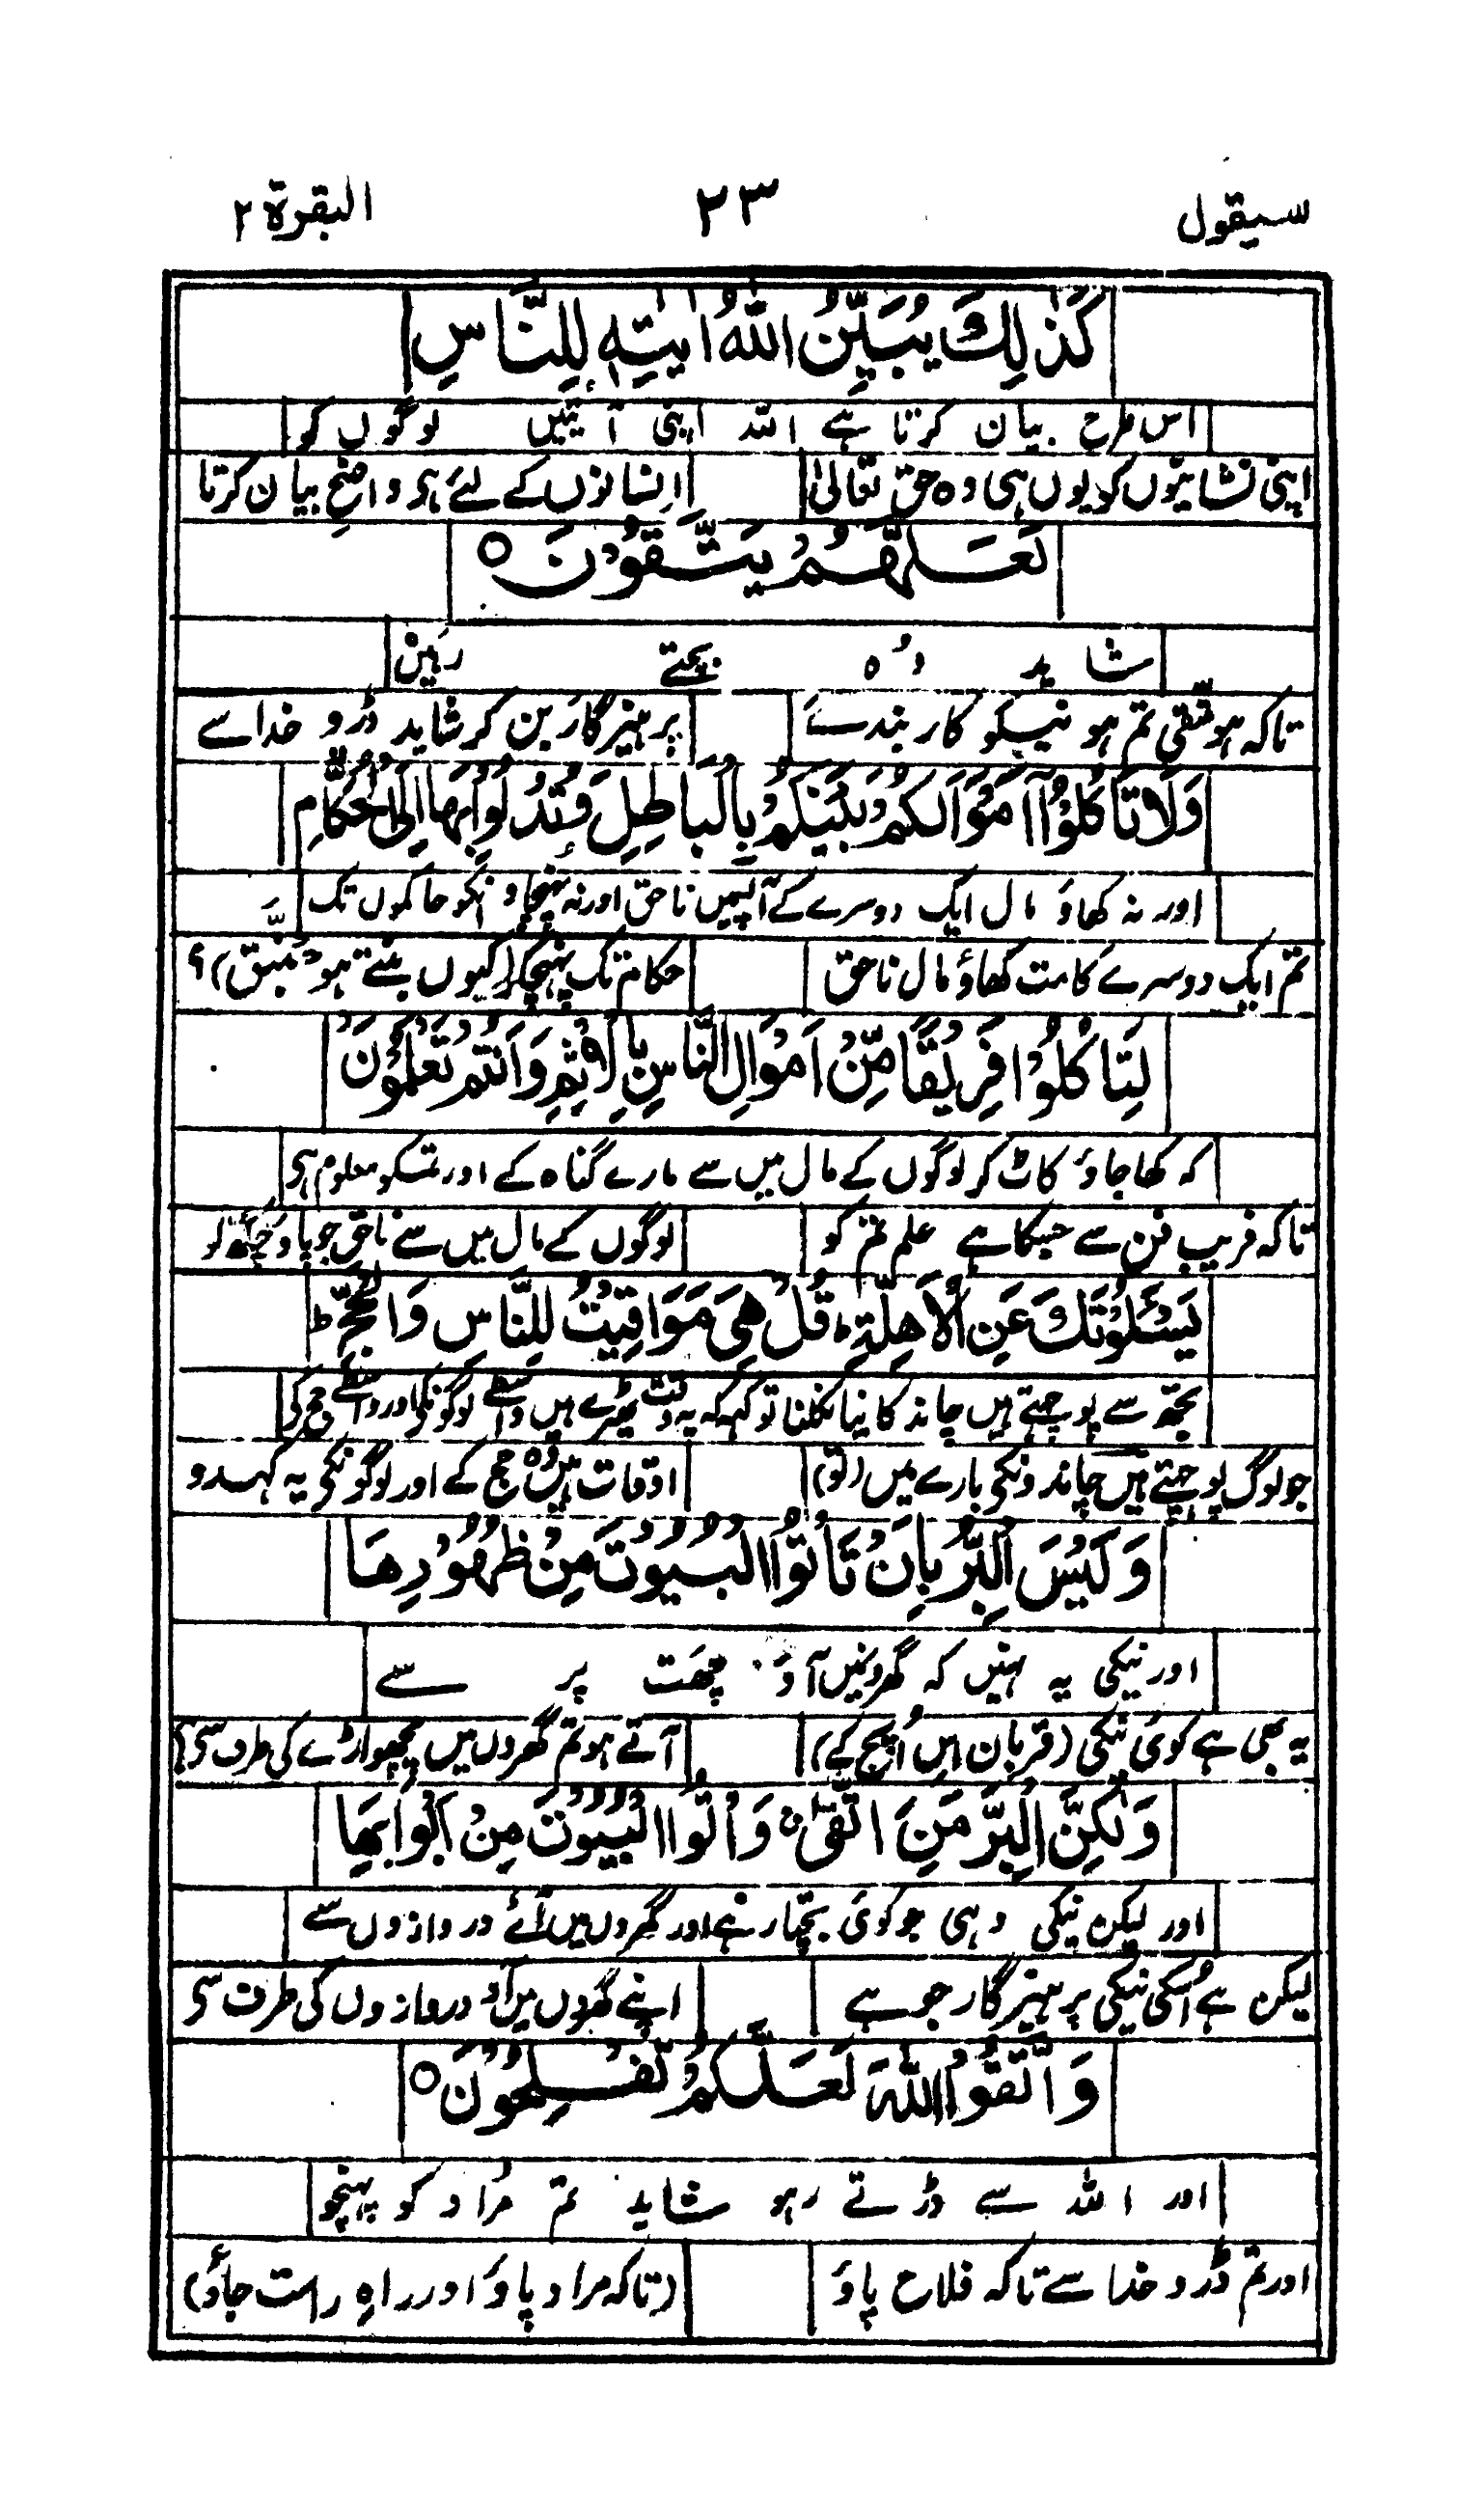 سیقول ۲۳ البقرة ۲
كَذٰلِكَ يُبَيِّنُ اللّٰهُ اٰيٰتِهٖ لِلنَّاسِ
اس طرح بیان کرتا ہے اللہ اپنی آیتیں لوگوں کو
اپنی نشانیوں کو یوں ہی وہ حق تعالیٰ انسانوں کے لئے ہی واضح بیان کرتا
لَعَلَّهُمْ يَتَّقُوْنَ ○
شاید وُہ بچتے رہیں
تاکہ ہو متقی تم ہو نیکو کار بندے پرہیزگار بن کر شاید ڈرو خدا سے
وَلَا تَاْكُلُوْٓا اَمْوَالَكُمْ بَيْنَكُمْ بِالْبَاطِلِ وَتُدْلُوْا بِهَا اِلَى الْحُكَّامِ
اور نہ کھاؤ مال ایک دوسرے کے آپسمیں ناحق اور نہ پہنچاو انکو حاکموں تک
تم ایک دوسرے کا مت کھاؤ مال ناحق حکام تک پہنچکر کیوں بنتے ہو
لِتَاْكُلُوْا فَرِيْقًا مِّنْ اَمْوَالِ النَّاسِ بِالْاِثْمِ وَاَنْتُمْ تَعْلَمُوْنَ
کہ کھا جاؤ کاٹ کر لوگوں کے مال میں سے مارے گناہ کے اور تمکو معلوم ہی
تاکہ فریب فن سے جسکا ہے علم تم کو لوگوں کے مال میں سے ناحق جو پاؤ
يَسْـَٔلُوْنَكَ عَنِ الْاَهِلَّةِ ؕ قُلْ هِيَ مَوَاقِيْتُ لِلنَّاسِ وَالْحَجِّ ؕ
تجھ سے پوچھتے ہیں چاند کا نیا نکلنا تو کہہ کہ یہ وقت ٹھیرے ہیں واسطے لوگونکی اور واسطے حج کی
جو لوگ پوچھتے ہیں چاندونکی بارے میں (تو) اوقات ہیں وُہ حج کے اور لوگونکی یہ کہدو
وَلَيْسَ الْبِرُّ بِاَنْ تَاْتُوا الْبُيُوْتَ مِنْ ظُهُوْرِهَا
اور نیکی یہ نہیں کہ گھروںمیں آؤ چھت پر سے
یہ بھی ہے کوئی نیکی (قربان اِس اُپج کے) آتے ہو تم گھروں میں پچھواڑے کی طرف سی؟
وَلٰكِنَّ الْبِرَّ مَنِ اتَّقٰى ۚ وَاْتُوا الْبُيُوْتَ مِنْ اَبْوَابِهَا
اور لیکن نیکی وہی جو کوئی بچتا رہے اور گھروں میں آئے دروازوں سے
لیکن ہے اُسکی نیکی پرہیزگار جو ہے اپنے گھروں میں آؤ دروازوں کی طرف سی
وَاتَّقُوا اللّٰهَ لَعَلَّكُمْ تُفْلِحُوْنَ ○
اور اللہ سے ڈرتے رہو شاید تم مُراد کو پہنچو
اور تم ڈرو خدا سے تاکہ فلاح پاؤ (تاکہ مراد پاؤ اور راہِ راست جاؤ)